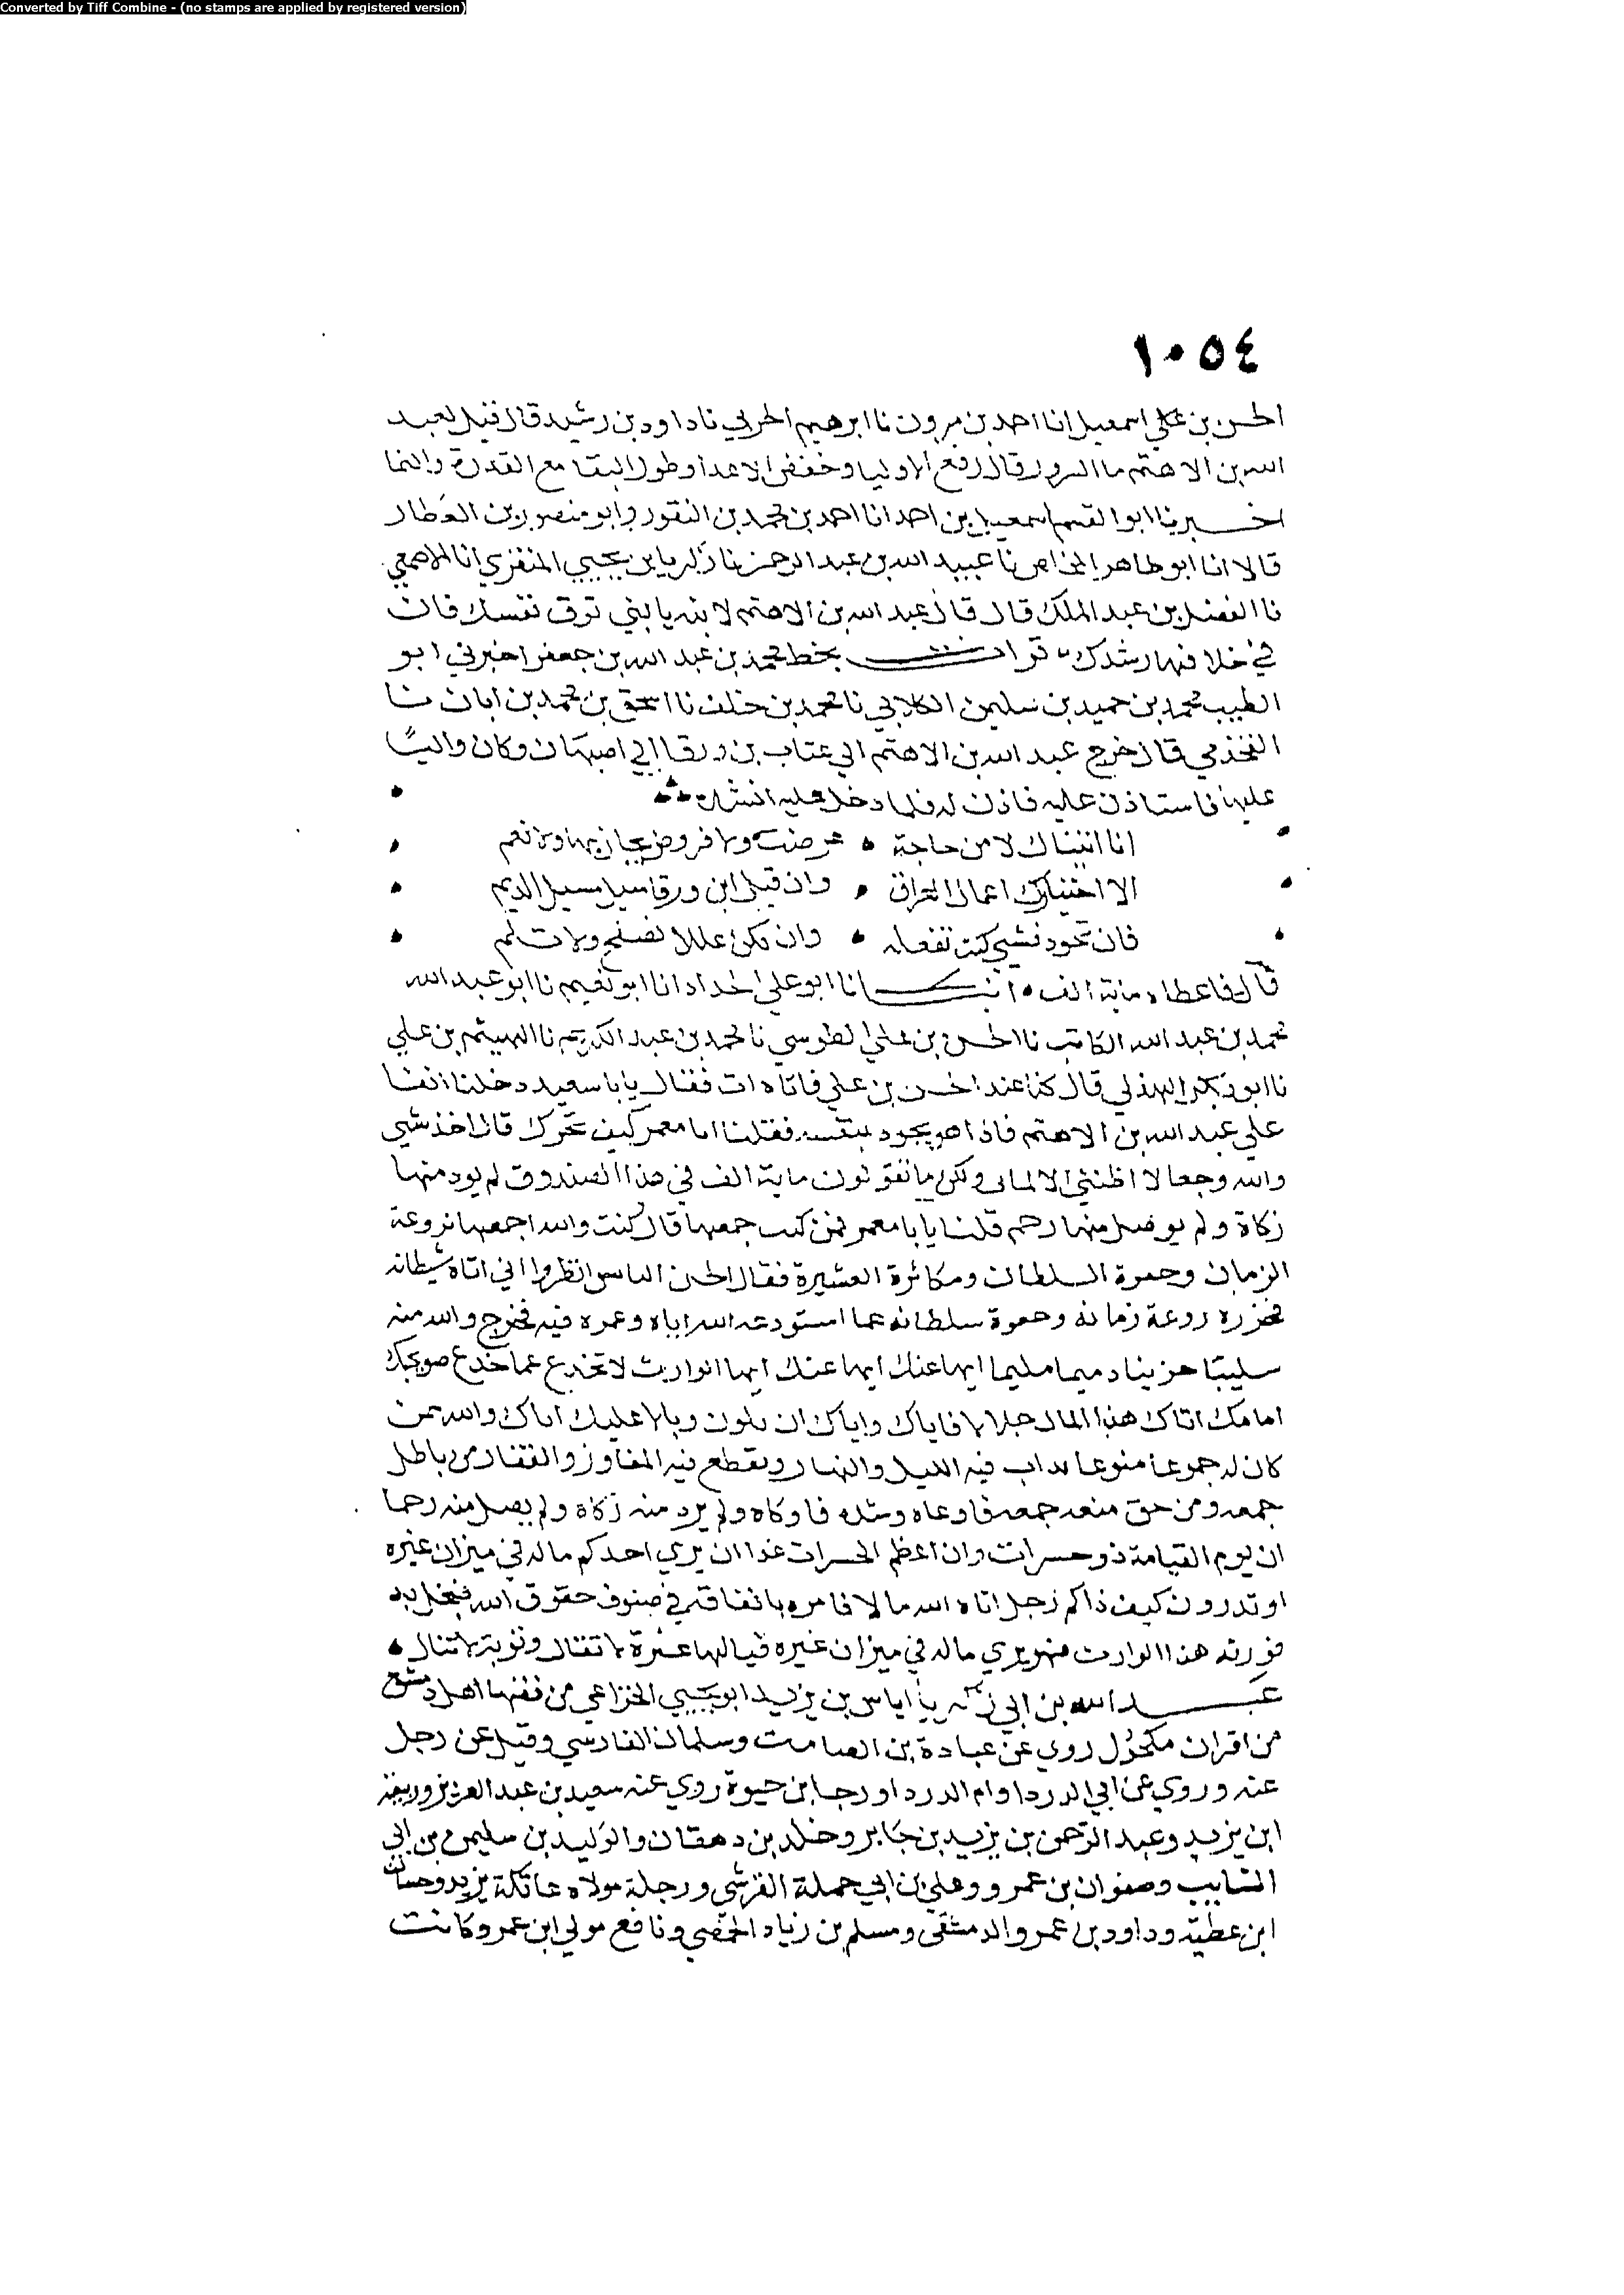 Converted by Tiff Combine - (no stamps are applied by registered version)
١٠٥٤
الحسن بن علي اسمعيل انا احمد بن مرون نا ابرهيم الحربي نا داود بن رشيد قال قيل لعبد
الله بن الاهتم ما السرور قال رفع الاوليا وخفض الاعدا وطول البقا مع القدرة والنما
اخبرنا ابو القسم اسمعيل بن احمد انا احمد بن محمد بن النقور وابو منصور بن العطار
قالا انا ابو طاهر المخلص نا عبيد الله بن عبد الرحمن نا زكريا بن يحيي المنقري انا الاصمعي
نا الفضل بن عبد الملك قال قال عبد الله بن الاهتم لابنه يا بني توق نفسك فان
في خلافها رشدك قرات بخط محمد بن عبد الله بن جعفر اخبرني ابو
الطيب محمد بن حميد بن سليمن الكلابي نا محمد بن خلف نا اسحق بن محمد بن ابان نا
القحذمي قال خرج عبد الله بن الاهتم الي عتاب بن ورقا الي اصبهان وكان واليًا
عليها فاستاذن عليه فاذن له فلما دخل عليه انشده
انا اتيناك لا من حاجة عرضت ولا قروض يجازيها ولا نعم
الا اختيارك اعمال العراق وان قيل ابن ورقا سيل مسيل الديم
فان تجود فشي كنت تفعله وان تكن علل لا نصنح ولات لم
قال فاعطاه ماية الف انبانا ابو علي الحداد انا ابو نعيم نا ابو عبد الله
محمد بن عبد الله الكاتب نا الحسن بن علي الطوسي نا محمد بن عبد الكريم نا الهيثم بن علي
نا ابو بكر الهذلي قال كنا عند الحسن بن علي فاتاه ات فقال يابا سعيد دخلنا انفا
علي عبد الله بن الاهتم فاذا هو يجود بنفسه فقلنا ابا معمر كيف تجدك قال اخذ شي
والله وجعا لا اظنني الا لماى ولكن ما تقولون ماية الف في هذا الصندوق لم يود منها
زكاة ولم يوصل منها رحم قلنا يابا معمر فمن كنت جمعها قال كنت والله اجمعها لروعة
الزمان وجفوة السلطان ومكاثرة العشيرة فقال الحسن الباس انظروا اني اتاه شيطانه
فحزره روعة زمانه وجفوة سلطانه عما استودعه الله اياه وعمره فيه فخرج والله منه
سليبًا حزينا دميما مليما ايها عنك ايها عنك ايها الوارث لا تخدع عما خدع صويحبك
امامك اتاك هذا المال حلالا فاياك واياك ان يكون وبالا عليك اتاك والله ممن
كان له جموعا منوعا يداب فيه الليل والنهار ويقطع فيه المفاوز والقفار من باطل
جمعه ومن حق منعه جمعه فاوعاه وشده فاوكاه ولم يرد منه زكاة ولم يصل منه رحما
ان يوم القيامة ذو حسرات وان اعظم الحسرات غدا ان يري احدكم ماله في ميزان غيره
او تدرون كيف ذاكم رجل اتاه الله مالا فامره بانفاقه في صنوف حقوق الله فبخل به
فورثه هذا الوارث فهو يري ماله في ميزان غيره فيا لها عثرة لا تقال وتوبة لا تنال
عبد الله بن ابي زكريا اياس بن يزيد ابو يحيي الخزاعي من فقها اهل دمشق
من اقران مكحول روي عن عبادة بن الصامت وسلمان الفارسي وقيل عن رجل
عنه وروي عن ابي الدردا وام الدردا ورجا بن حيوة روي عنه سعيد بن عبد العزيز وربيعة
ابن يزيد وعبد الرحمن بن يزيد بن جابر وخلد بن دهقان والوليد بن سليمن بن ابي
السايب وصفوان بن عمرو وعلي بن ابي حملة القرشي ورجلة مولاه عاتكة يزيد وحسان
ابن عطية وداود بن عمرو الدمشقي ومسلم بن زياد الحمصي ونافع مولي ابن عمر وكانت